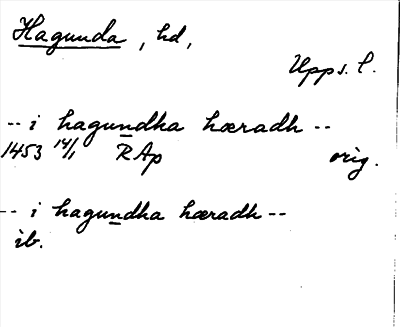 Hagunda, hd,
Upps. l.
-- i hagundha hæradh --
1453 14/1 RAp orig.
-- i hagundha hæradh --
ib.